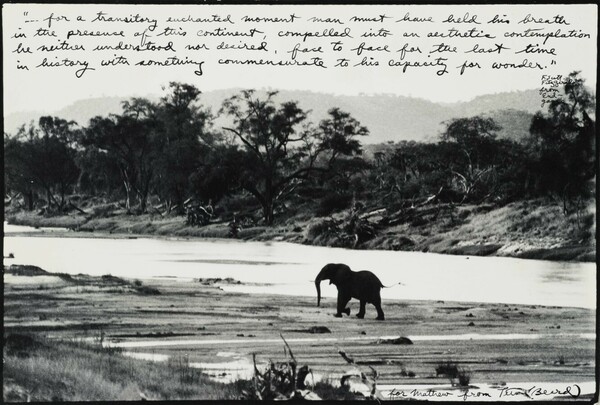 "... for a transitory enchanted moment man must have held his breath
in the presence of this continent, compelled into an aesthetic contemplation
he neither understood nor desired, face to face for the last time
in history with something commensurate to his capacity for wonder."
Scott
Fitzgerald
from
for Mathew from Peter (Beard)